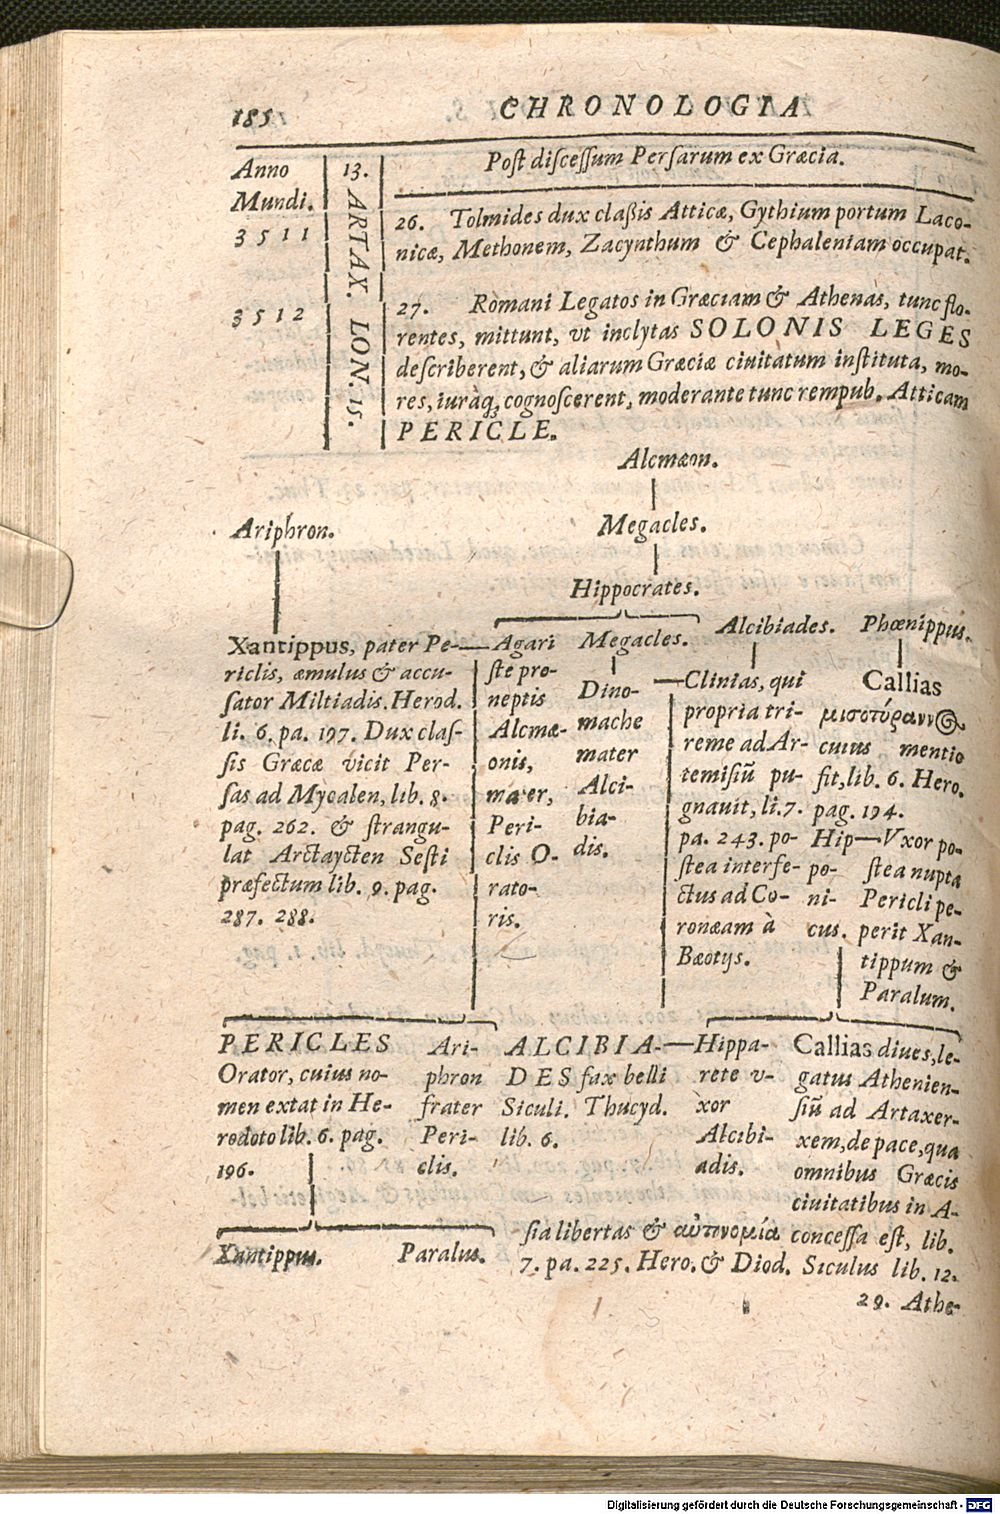 185
CHRONOLOGIA
Anno
Mundi.
3511
3512
13. ARTAX. LON. 15.
Post discessum Persarum ex Græcia.
26. Tolmides dux claßis Atticæ, Gythium portum Laco-
nicæ, Methonem, Zacynthum & Cephaleniam occupat.
27. Romani Legatos in Græciam & Athenas, tunc flo-
rentes, mittunt, vt inclytas SOLONIS LEGES
describerent, & aliarum Græciæ ciuitatum instituta, mo-
res, iuraq́, cognoscerent, moderante tunc rempub. Atticam
PERICLE.
Alcmæon.
Ariphron.
Megacles.
Hippocrates.
Xantippus, pater Pe-
riclis, æmulus & accu-
sator Miltiadis. Herod.
li. 6. pa. 197. Dux clas-
sis Græcæ vicit Per-
sas ad Mycalen, lib. 8.
pag. 262. & strangu-
lat Arctaycten Sesti
præfectum lib. 9. pag.
287. 288.
Agari
ste pro-
neptis
Alcmæ-
onis,
mater,
Peri-
clis O-
rato-
ris.
Megacles.
Dino-
mache
mater
Alci-
bia-
dis.
Alcibiades.
Clinias, qui
propria tri-
reme ad Ar-
temisiũ pu-
gnauit, li. 7.
pa. 243. po-
stea interfe-
ctus ad Co-
ronæam à
Bæotijs.
Phœnippus.
Callias
μισοτύραννος
cuius mentio
fit, lib. 6. Hero.
pag. 194.
Hip-
po-
ni-
cus.
Vxor po-
stea nupta
Pericli pe-
perit Xan-
tippum &
Paralum.
PERICLES
Orator, cuius no-
men extat in He-
rodoto lib. 6. pag.
196.
Ari-
phron
frater
Peri-
clis.
ALCIBIA-
DES fax belli
Siculi. Thucyd.
lib. 6.
Hippa-
rete v-
xor
Alcibi-
adis.
Callias diues, le-
gatus Athenien-
siũ ad Artaxer-
xem, de pace, qua
omnibus Græcis
ciuitatibus in A-
sia libertas & αὐτονομία concessa est, lib.
7. pa. 225. Hero. & Diod. Siculus lib. 12.
Xantippus.
Paralus.
29. Athe-
Digitalisierung gefördert durch die Deutsche Forschungsgemeinschaft - DFG